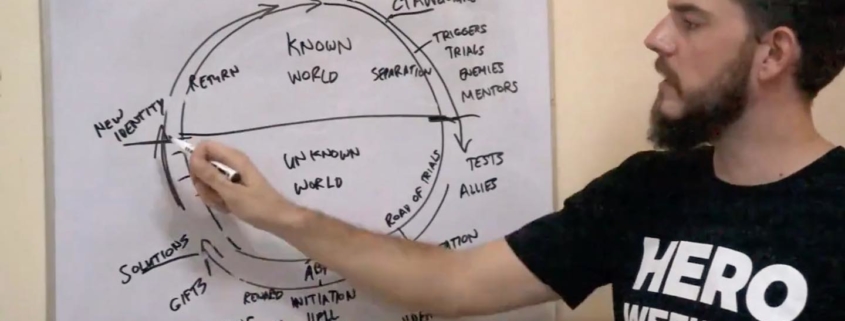 KNOWN
WORLD
RETURN
SEPARATION
TRIGGERS
TRIALS
ENEMIES
MENTORS
NEW
IDENTITY
UNKNOWN
WORLD
ROAD OF TRIALS
TESTS
ALLIES
SOLUTIONS
GIFTS
REWARD
INITIATION
HERO